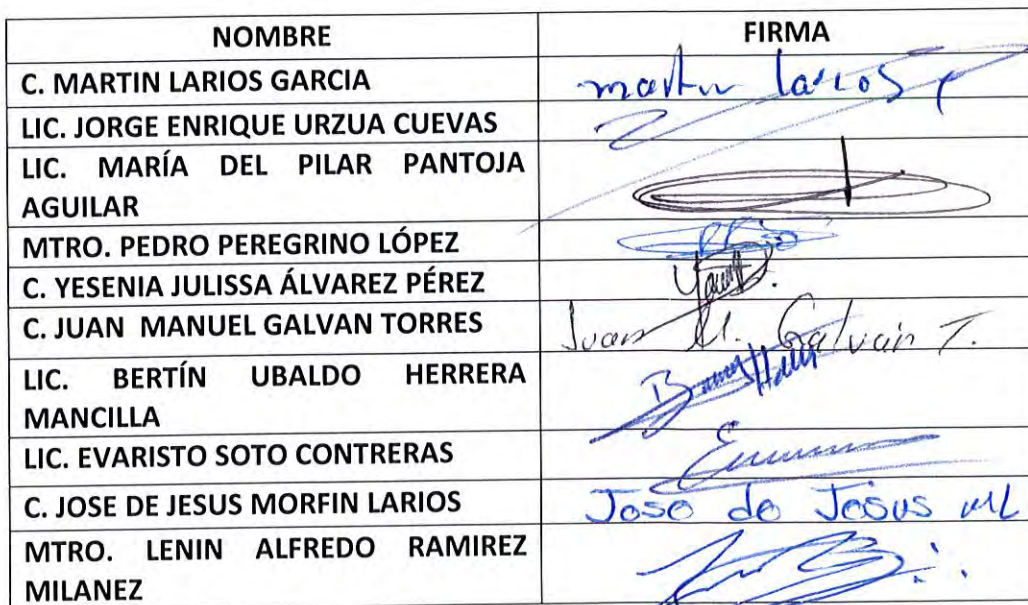 NOMBRE FIRMA
C. MARTIN LARIOS GARCIA martin larios
LIC. JORGE ENRIQUE URZUA CUEVAS
LIC. MARÍA DEL PILAR PANTOJA
AGUILAR
MTRO. PEDRO PEREGRINO LÓPEZ
C. YESENIA JULISSA ÁLVAREZ PÉREZ
C. JUAN MANUEL GALVAN TORRES Juan M. Galvain T.
LIC. BERTÍN UBALDO HERRERA
MANCILLA
LIC. EVARISTO SOTO CONTRERAS
C. JOSE DE JESUS MORFIN LARIOS Jose de Jesus ML
MTRO. LENIN ALFREDO RAMIREZ
MILANEZ